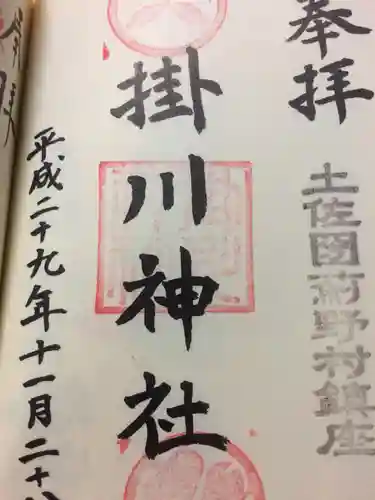 奉拝
土佐国薊野村鎮座
掛川神社
平成二十九年十一月二十八